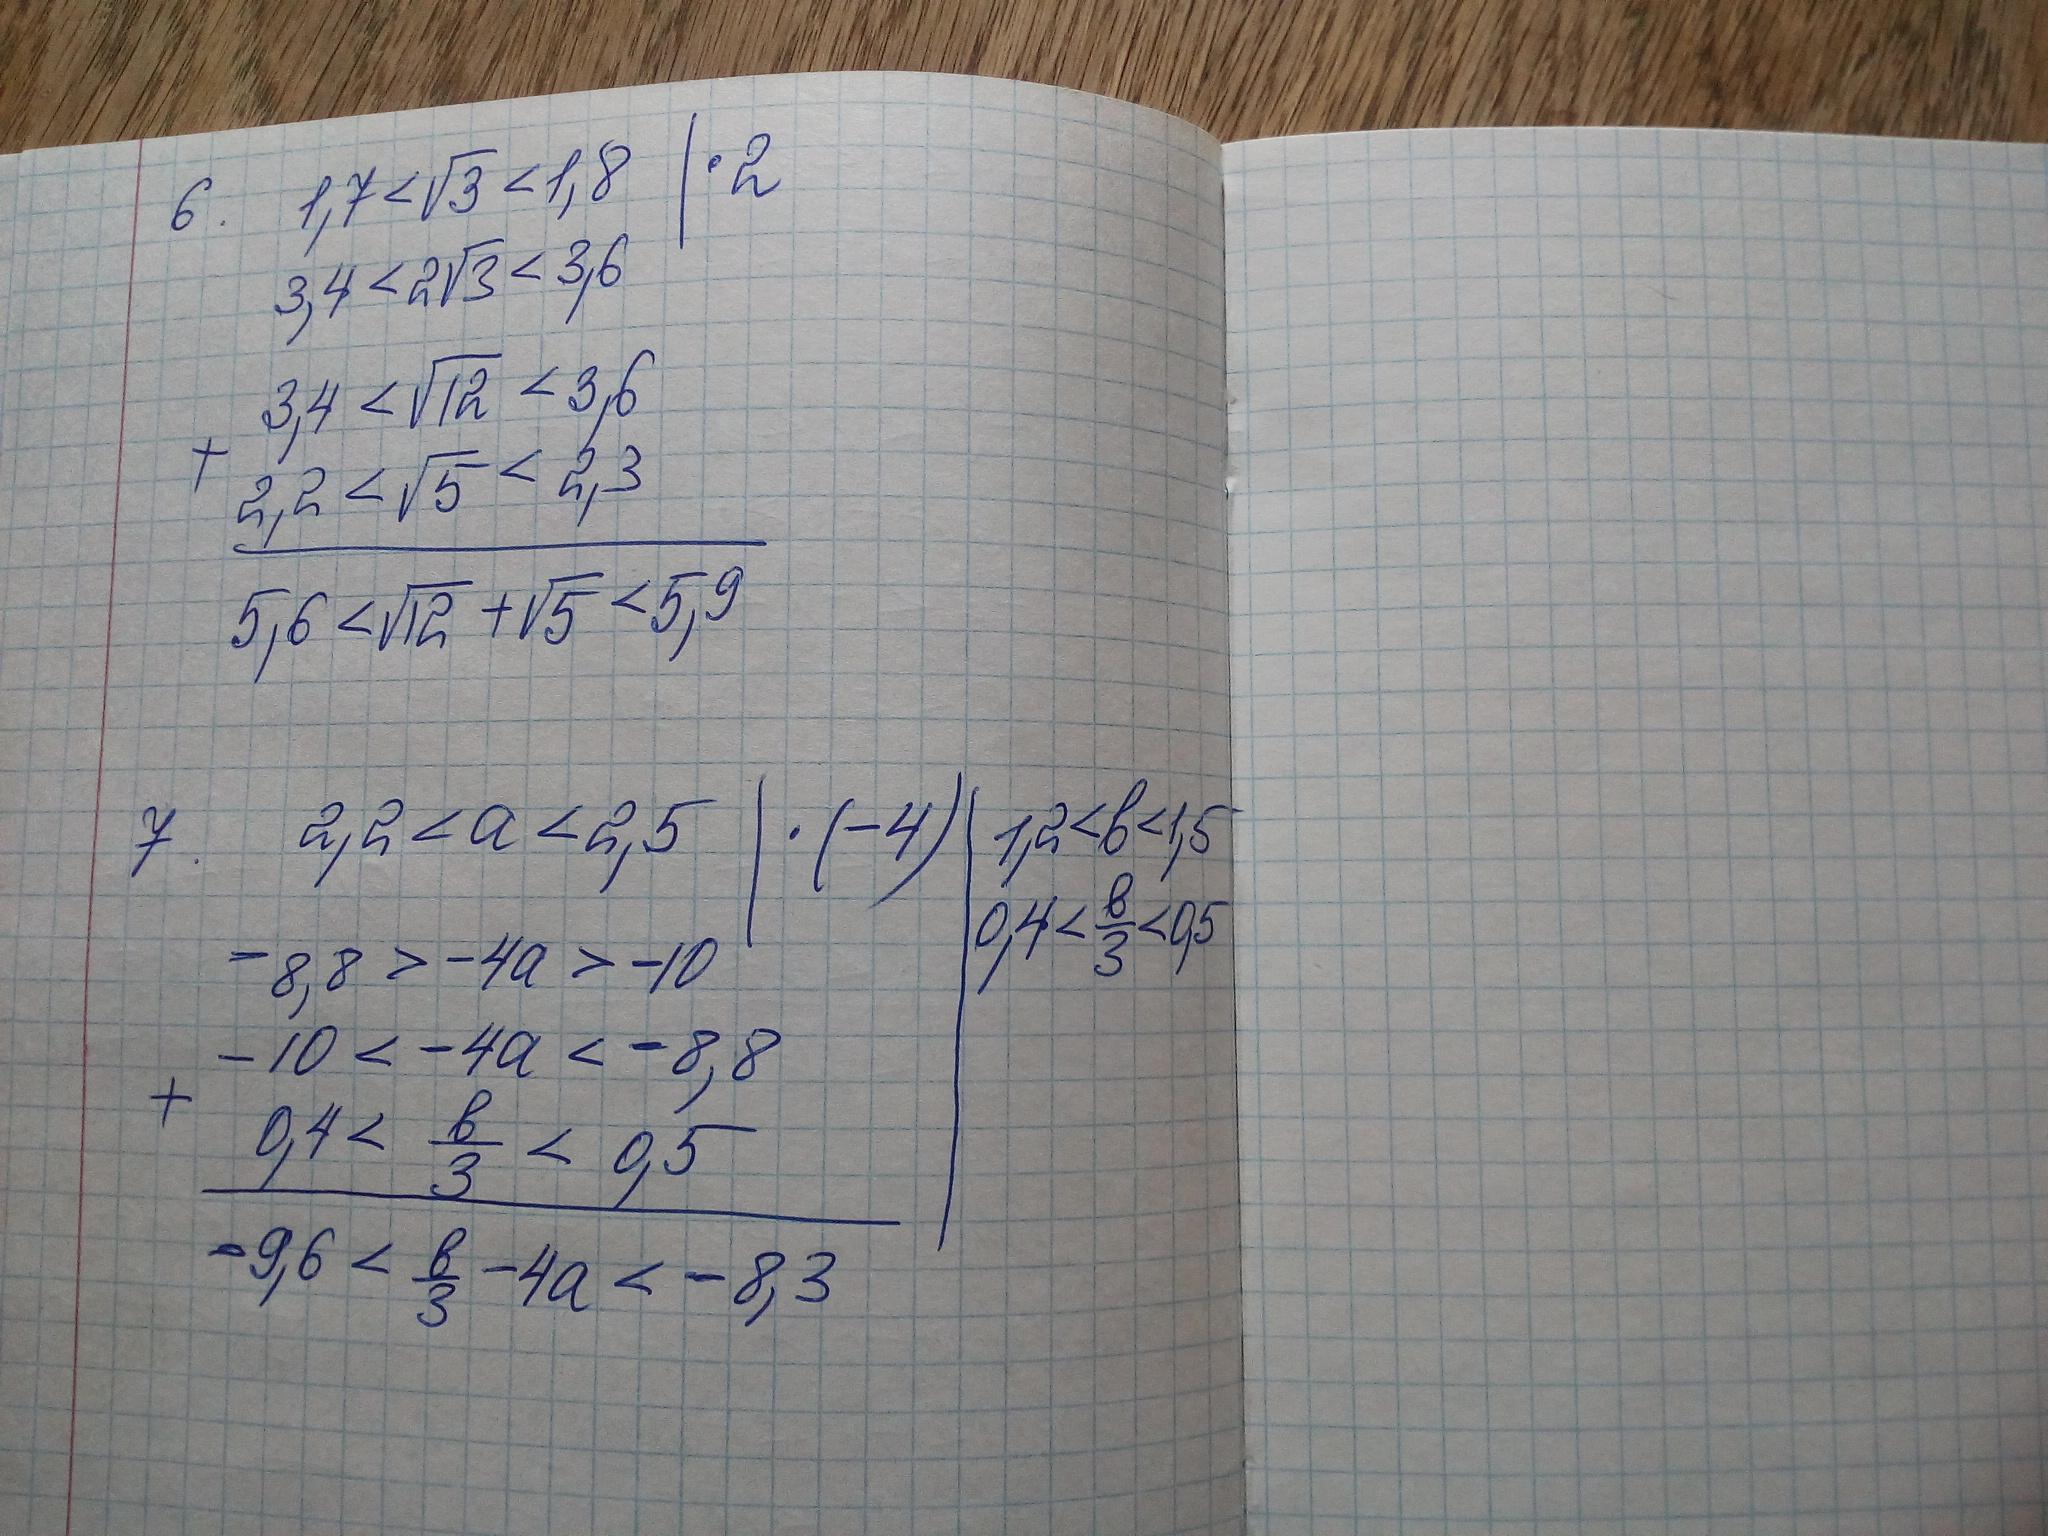 6. 1,7<√3<1,8 | ·2
3,4<2√3<3,6
3,4<√12<3,6
+
2,2<√5<2,3
5,6<√12+√5<5,9
7. 2,2<a<2,5 | ·(-4) | 1,2<в<1,5
0,4<в/3<0,5
-8,8>-4a>-10
-10<-4a<-8,8
+
0,4<в/3<0,5
-9,6<в/3-4a<-8,3